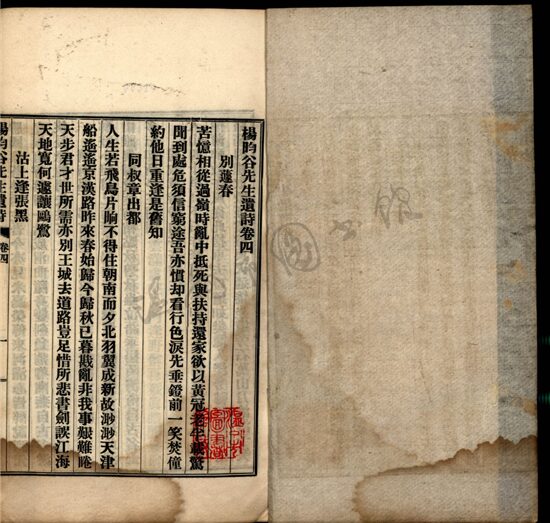 楊昀谷先生遺詩卷四
別蓮春
苦憶相從過嶺時亂中抵死與扶持還家欲以黃冠老生載驚
聞到處危須信窮途吾亦慣却看行色淚先垂鐙前一笑焚僮
約他日重逢是舊知
同叔章出都
人生若飛鳥片晌不得住朝南而夕北羽翼成新故渺渺天津
船遙遙京漢路昨來春始歸今歸秋已暮戡亂非我事艱難睠
天步君才世所需亦別王城去道路豈足惜所悲書劍誤江海
天地寬何遽讓鷗鷺
沽上逢張黑
楊昀谷先生遺詩 卷四